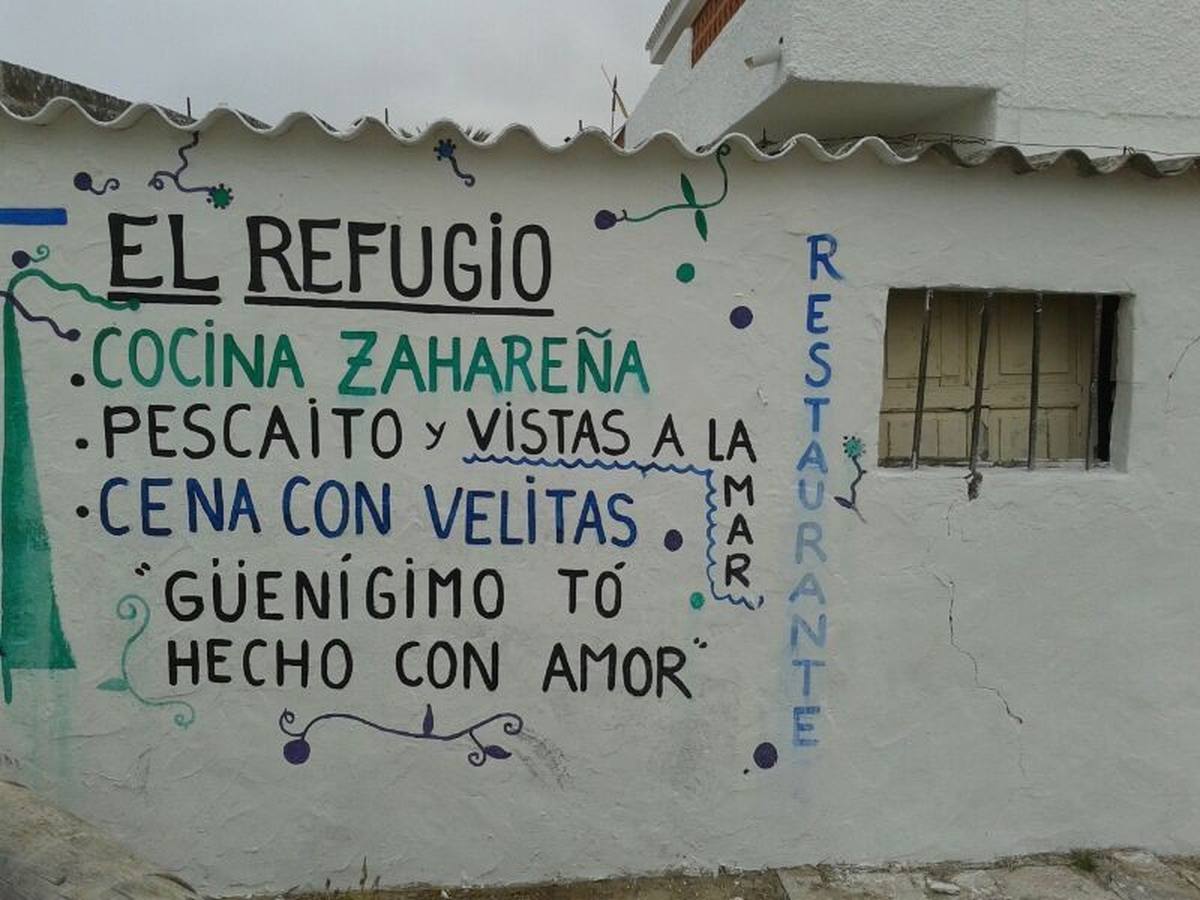 EL REFUGIO
COCINA ZAHAREÑA
PESCAITO y VISTAS A LA
MAR
CENA CON VELITAS
"GÜENÍGIMO TÓ
HECHO CON AMOR"
RESTAURANTE